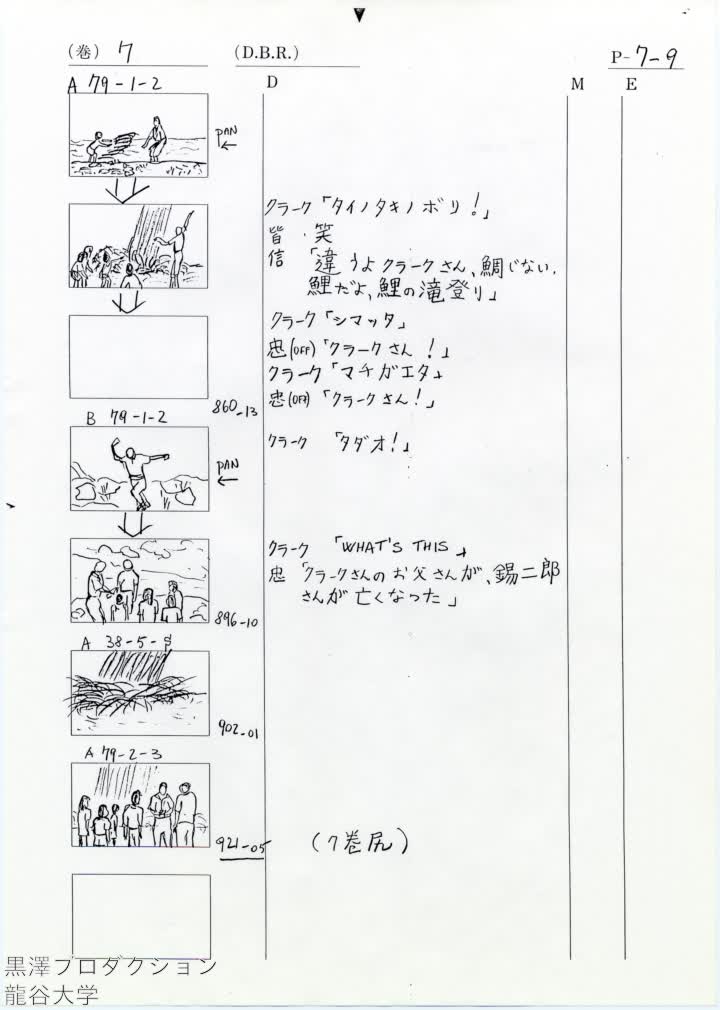 (巻) 7
(D.B.R.)
P-7-9
D
M
E
A 79-1-2
PAN
クラーク「タイノタキノボリ!」
皆・笑
信「違うよクラークさん、鯛じない、
鯉だよ、鯉の滝登り」
クラーク「シマッタ」
忠(OFF)「クラークさん!」
クラーク「マチガエタ」
忠(OFF)「クラークさん!」
860-13
B 79-1-2
PAN
クラーク「タダオ!」
クラーク「WHAT'S THIS」
忠「クラークさんのお父さんが、錫二郎
さんが亡くなった」
896-10
A 38-5-
902-01
A 79-2-3
921-05
(7巻尻)
黒澤プロダクション
龍谷大学